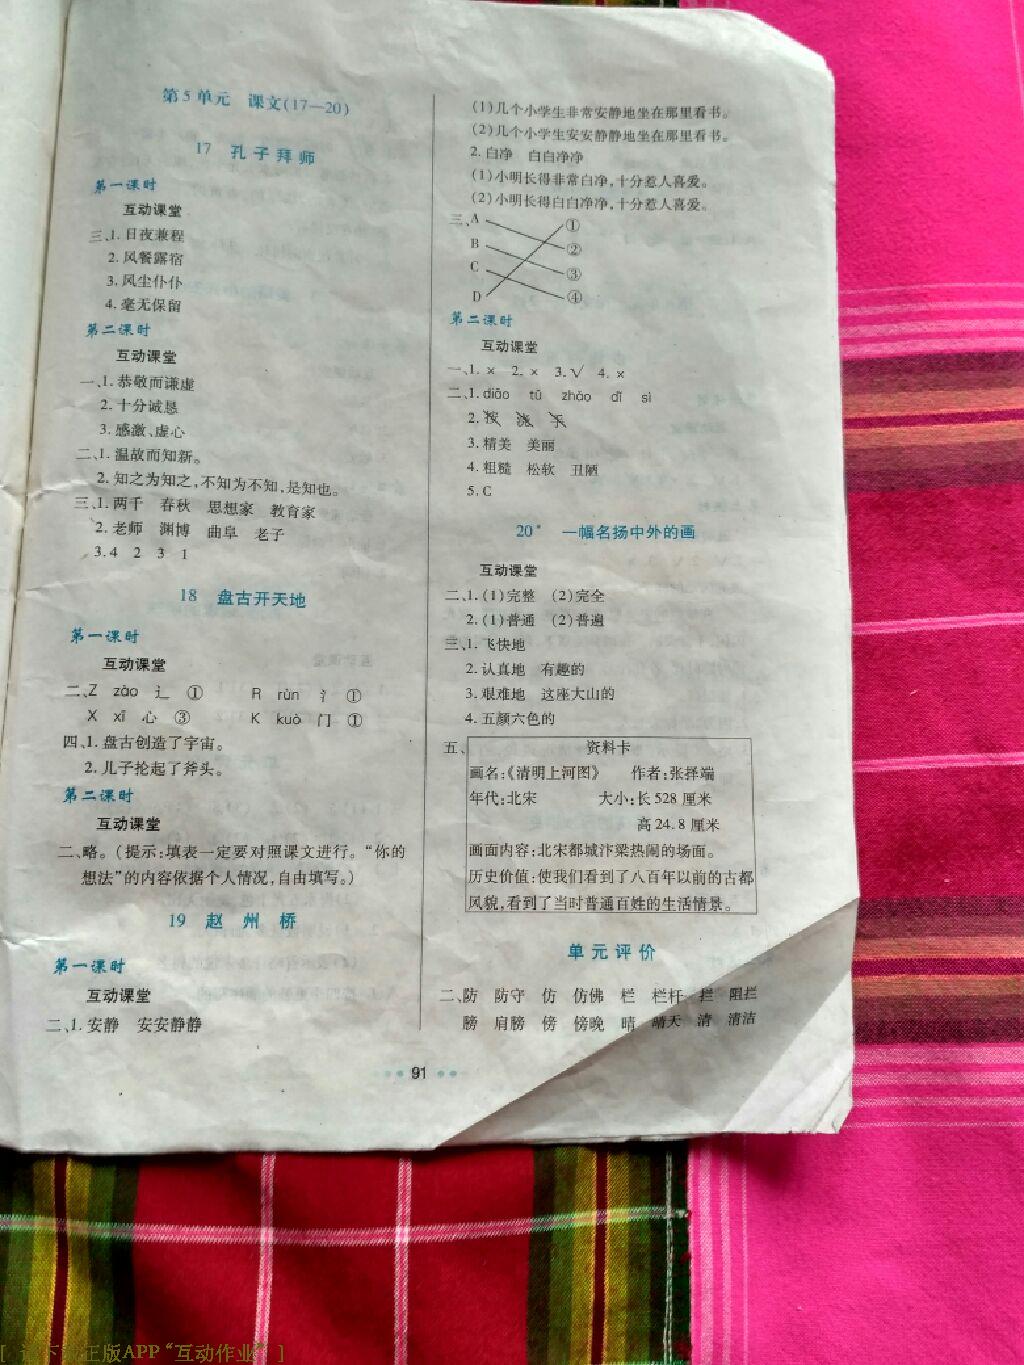 第5单元 课文(17—20)
17 孔子拜师
第一课时
互动课堂
三、1.日夜兼程
2.风餐露宿
3.风尘仆仆
4.毫无保留
第二课时
互动课堂
一、1.恭敬而谦虚
2.十分诚恳
3.感激、虚心
二、1.温故而知新。
2.知之为知之,不知为不知,是知也。
三、1.两千 春秋 思想家 教育家
2.老师 渊博 曲阜 老子
3.4 2 3 1
18 盘古开天地
第一课时
互动课堂
二、Z zào 辶 ① R rùn 氵 ①
X xī 心 ③ K kuò 门 ①
四、1.盘古创造了宇宙。
2.儿子抡起了斧头。
第二课时
互动课堂
二、略。(提示:填表一定要对照课文进行。“你的
想法”的内容依据个人情况,自由填写。)
19 赵州桥
第一课时
互动课堂
二、1.安静 安安静静
(1)几个小学生非常安静地坐在那里看书。
(2)几个小学生安安静静地坐在那里看书。
2.白净 白白净净
(1)小明长得非常白净,十分惹人喜爱。
(2)小明长得白白净净,十分惹人喜爱。
三、A ①
B ②
C ③
D ④
第二课时
互动课堂
一、1.× 2.× 3.√ 4.×
二、1.diāo tū zhǎo dǐ sì
2.按 浇 手
3.精美 美丽
4.粗糙 松软 丑陋
5.C
20* 一幅名扬中外的画
互动课堂
二、1.(1)完整 (2)完全
2.(1)普通 (2)普遍
三、1.飞快地
2.认真地 有趣的
3.艰难地 这座大山的
4.五颜六色的
五、资料卡
画名:《清明上河图》 作者:张择端
年代:北宋 大小:长528厘米
高24.8厘米
画面内容:北宋都城汴梁热闹的场面。
历史价值:使我们看到了八百年以前的古都
风貌,看到了当时普通百姓的生活情景。
单元评价
二、防 防守 仿 仿佛 栏 栏杆 拦 阻拦
膀 肩膀 傍 傍晚 晴 晴天 清 清洁
91
正版APP“互动作业”]